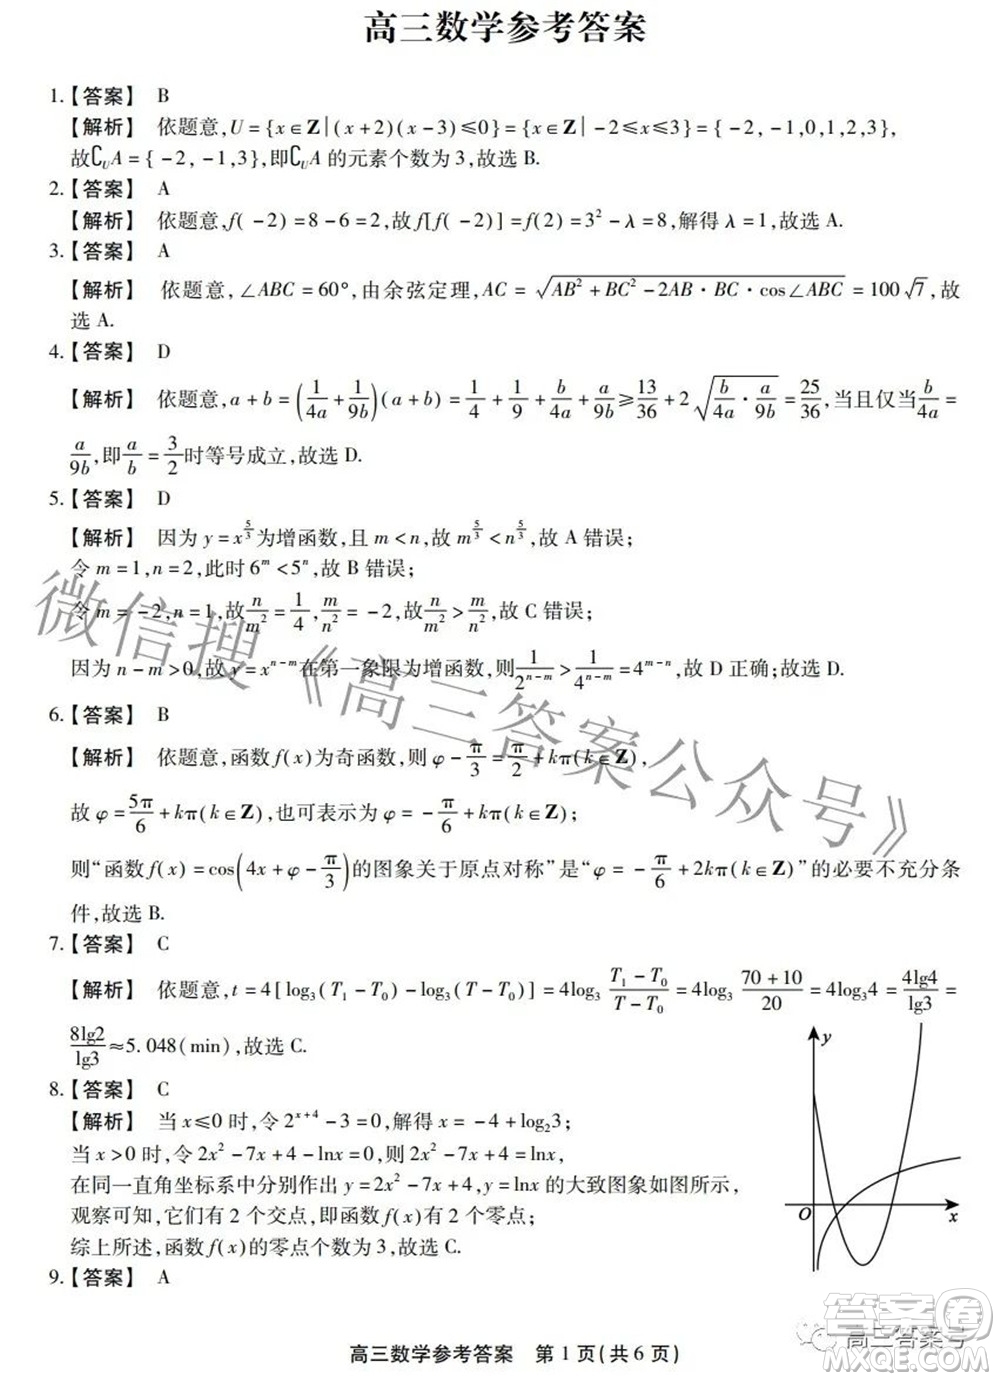 高三数学参考答案
1.【答案】 B
【解析】 依题意,U={x∈Z|(x+2)(x-3)≤0}={x∈Z|-2≤x≤3}={-2,-1,0,1,2,3},
故∁_U A={-2,-1,3},即∁_U A 的元素个数为 3,故选 B.
2.【答案】 A
【解析】 依题意,f(-2)=8-6=2,故f[f(-2)]=f(2)=3²-λ=8,解得 λ=1,故选 A.
3.【答案】 A
【解析】 依题意,∠ABC=60°,由余弦定理,AC=√(AB²+BC²-2AB·BC·cos∠ABC)=100√7,故
选 A.
4.【答案】 D
【解析】 依题意,a+b=(1/4a+1/9b)(a+b)=1/4+1/9+b/4a+a/9b≥13/36+2√(b/4a·a/9b)=25/36,当且仅当b/4a=
a/9b,即a/b=3/2时等号成立,故选 D.
5.【答案】 D
【解析】 因为 y=x^(5/3)为增函数,且 m<n,故 m^(5/3)<n^(5/3),故 A 错误;
令 m=1,n=2,此时 6^m<5^n,故 B 错误;
令 m=-2,n=1,故n/m²=1/4,m/n²=-2,故n/m²>m/n²,故 C 错误;
因为 n-m>0,故 y=x^(n-m)在第一象限为增函数,则1/2^(n-m)>1/4^(n-m)=4^(m-n),故 D 正确;故选 D.
6.【答案】 B
【解析】 依题意,函数 f(x)为奇函数,则 φ-π/3=π/2+kπ(k∈Z),
故 φ=5π/6+kπ(k∈Z),也可表示为 φ=-π/6+kπ(k∈Z);
则“函数 f(x)=cos(4x+φ-π/3)的图象关于原点对称”是“φ=-π/6+2kπ(k∈Z)”的必要不充分条
件,故选 B.
7.【答案】 C
【解析】 依题意,t=4[log₃(T₁-T₀)-log₃(T-T₀)]=4log₃ (T₁-T₀)/(T-T₀)=4log₃ (70+10)/20=4log₃4=4lg4/lg3=
8lg2/lg3≈5.048(min),故选 C.
8.【答案】 C
【解析】 当 x≤0 时,令 2^(x+4)-3=0,解得 x=-4+log₂3;
当 x>0 时,令 2x²-7x+4-lnx=0,则 2x²-7x+4=lnx,
在同一直角坐标系中分别作出 y=2x²-7x+4,y=lnx 的大致图象如图所示,
观察可知,它们有 2 个交点,即函数 f(x)有 2 个零点;
综上所述,函数 f(x)的零点个数为 3,故选 C.
y
O
x
9.【答案】 A
高三数学参考答案 第 1 页(共 6 页)
微信搜《高三答案公众号》
高三答案号
答案圈
MXQE.COM